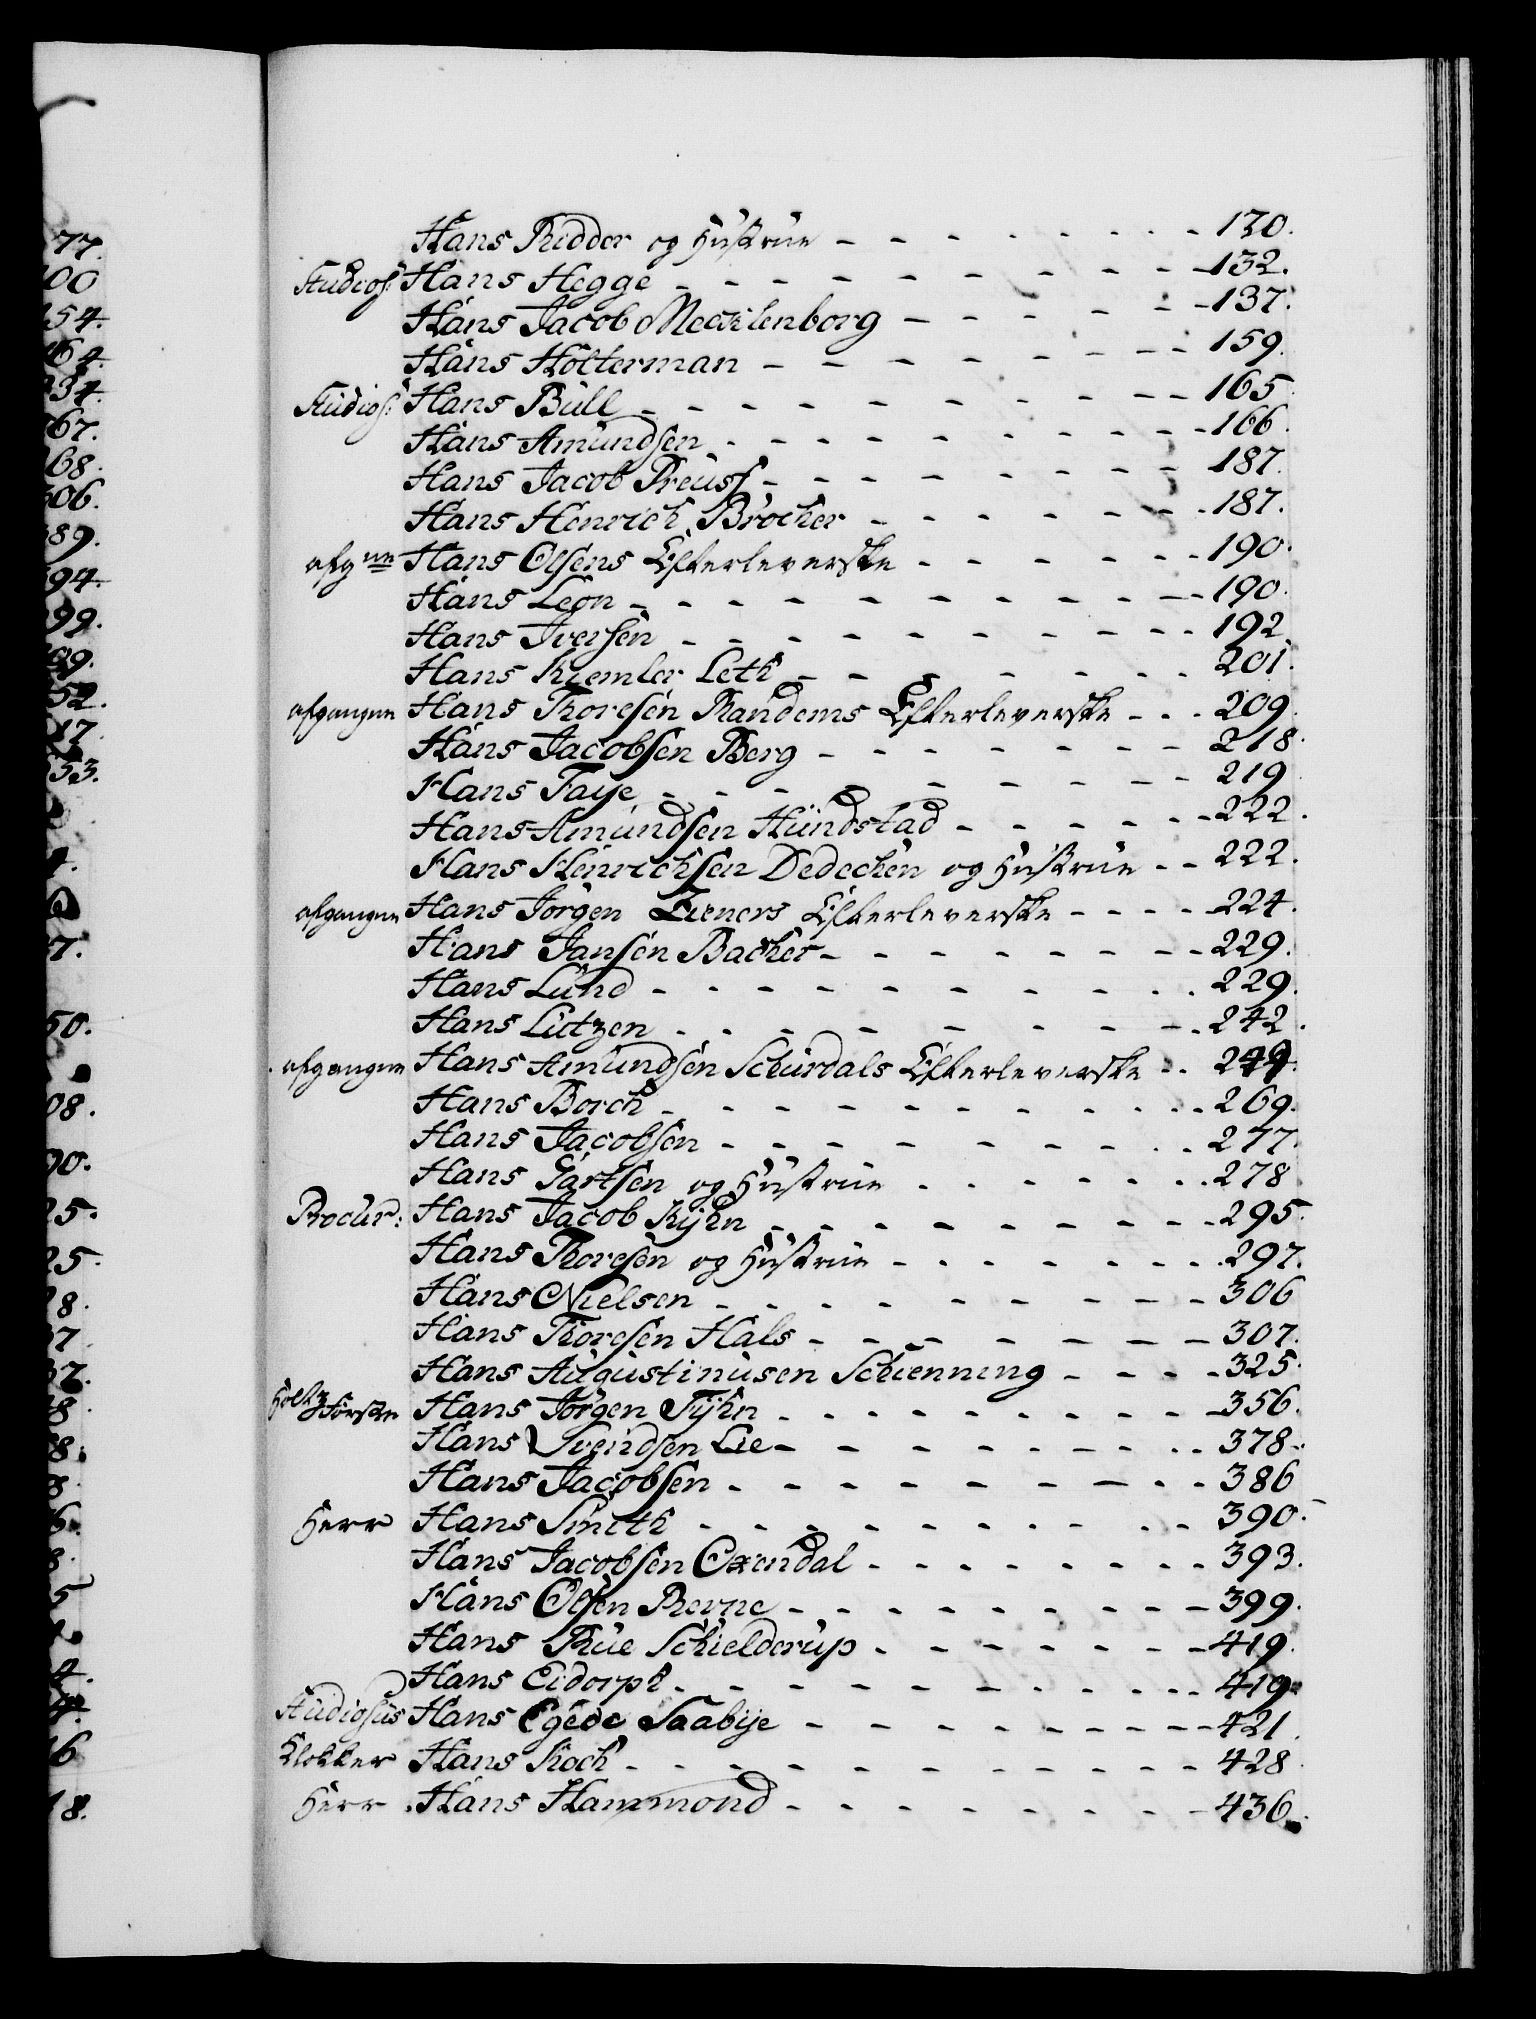 Hans Ridder og Hustrue - - - - - - - - 130.
Studios: Hans Hegge - - - - - - - - - - 132.
Hans Jacob Mecklenborg - - - - - - 137.
Hans Holterman - - - - - - - - 159.
Studios: Hans Bull - - - - - - - - - - 165.
Hans Amundsen - - - - - - - - - 166.
Hans Jacob Preuss - - - - - - - - 187.
Hans Henrich Brocher - - - - - - - 187.
afgne Hans Olsens Efterleverske - - - - - - 190.
Hans Leon - - - - - - - - - - 190.
Hans Iversen - - - - - - - - - 192.
Hans Kiemler Leth - - - - - - - 201.
afgangne Hans Thoresen Randems Efterleverske - - - 209.
Hans Jacobsen Berg - - - - - - - - 218.
Hans Faye - - - - - - - - - - 219
Hans Amundsen Hundstad - - - - - - 222.
Hans Henrichsen Dedechen og Hustrue - - 222.
afgangne Hans Jørgen Lieners Efterleverske - - - - 224.
Hans Jansen Bacher - - - - - - - - 229.
Hans Lund - - - - - - - - - - 229.
Hans Lutzen - - - - - - - - - 242.
afgangne Hans Amundsen Schurdals Efterleverske - - 244.
Hans Borch - - - - - - - - - - 269.
Hans Jacobsen - - - - - - - - - 277.
Hans Gartsen og Hustrue - - - - - - - 278.
Procur: Hans Jacob Kyhn - - - - - - - - - 295.
Hans Thoresen og Hustrue - - - - - - - 297.
Hans Nielsen - - - - - - - - - - 306
Hans Thoresen Hals - - - - - - - - 307.
Hans Augustinusen Schienning - - - - 325.
Holtzførster Hans Jørgen Tyhn - - - - - - - - - 356.
Hans Svendsen Lie - - - - - - - - - 378.
Hans Jacobsen - - - - - - - - - 386
Herr Hans Smith - - - - - - - - - - 390.
Hans Jacobsen Oxendal - - - - - - - - 393.
Hans Olsen Berne - - - - - - - - - 399.
Hans Thue Schielderup - - - - - - - 419.
Hans Eidorph - - - - - - - - - - 419.
Studiosus Hans Egede Saabye - - - - - - - - - 421.
Klokker Hans Koch - - - - - - - - - - - 428.
Herr Hans Hammond - - - - - - - - - 436.